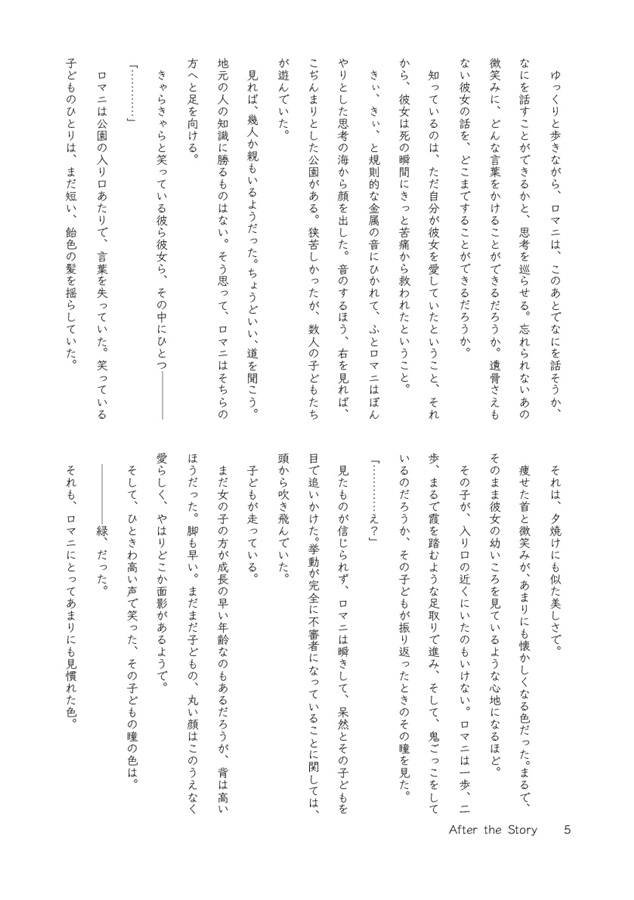 ゆっくりと歩きながら、ロマニは、このあとでなにを話そうか、
なにを話すことができるかと、思考を巡らせる。忘れられないあの
微笑みに、どんな言葉をかけることができるだろうか。遺骨さえも
ない彼女の話を、どこまですることができるだろうか。
知っているのは、ただ自分が彼女を愛していたということ、それ
から、彼女は死の瞬間にきっと苦痛から救われたということ。
きぃ、きぃ、と規則的な金属の音にひかれて、ふとロマニはぼん
やりとした思考の海から顔を出した。音のするほう、右を見れば、
こぢんまりとした公園がある。狭苦しかったが、数人の子どもたち
が遊んでいた。
見れば、幾人か親もいるようだった。ちょうどいい、道を聞こう。
地元の人の知識に勝るものはない。そう思って、ロマニはそちらの
方へと足を向ける。
きゃらきゃらと笑っている彼ら彼女ら、その中にひとつ――――
「…………」
ロマニは公園の入り口あたりで、言葉を失っていた。笑っている
子どものひとりは、まだ短い、飴色の髪を揺らしていた。
それは、夕焼けにも似た美しさで。
痩せた首と微笑みが、あまりにも懐かしくなる色だった。まるで、
そのまま彼女の幼いころを見ているような心地になるほど。
その子が、入り口の近くにいたのもいけない。ロマニは一歩、二
歩、まるで霞を踏むような足取りで進み、そして、鬼ごっこをして
いるのだろうか、その子どもが振り返ったときのその瞳を見た。
「…………え？」
見たものが信じられず、ロマニは瞬きして、呆然とその子どもを
目で追いかけた。挙動が完全に不審者になっていることに関しては、
頭から吹き飛んでいた。
子どもが走っている。
まだ女の子の方が成長の早い年齢なのもあるだろうが、背は高い
ほうだった。脚も早い。まだまだ子どもの、丸い顔はこのうえなく
愛らしく、やはりどこか面影があるようで。
そして、ひときわ高い声で笑った、その子どもの瞳の色は。
――――緑、だった。
それも、ロマニにとってあまりにも見慣れた色。
After the Story 5